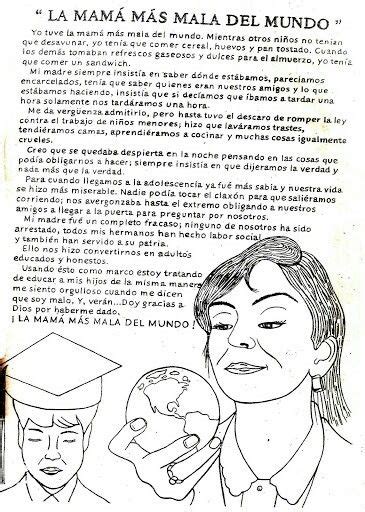 " LA MAMÁ MÁS MALA DEL MUNDO "
Yo tuve la mamá más mala del mundo. Mientras otros niños no tenían
que desayunar, yo tenía que comer cereal, huevos y pan tostado. Cuando
los demás tomaban refrescos gaseosos y dulces para el almuerzo, yo tenía
que comer un sandwich.
Mi madre siempre insistía en saber dónde estábamos, parecíamos
encarcelados, tenía que saber quienes eran nuestros amigos y lo que
estábamos haciendo, insistía que si decíamos que íbamos a tardar una
hora solamente nos tardáramos una hora.
Me da vergüenza admitirlo, pero hasta tuvo el descaro de romper la ley
contra el trabajo de niños menores; hizo que laváramos trastes,
tendiéramos camas, aprendiéramos a cocinar y muchas cosas igualmente
crueles.
Creo que se quedaba despierta en la noche pensando en las cosas que
podía obligarnos a hacer; siempre insistía en que dijeramos la verdad y
nada más que la verdad.
Para cuando llegamos a la adolescencia ya fué más sabia y nuestra vida
se hizo más miserable. Nadie podía tocar el claxón para que saliéramos
corriendo; nos avergonzaba hasta el extremo obligando a nuestros
amigos a llegar a la puerta para preguntar por nosotros.
Mi madre fué un completo fracaso; ninguno de nosotros ha sido
arrestado, todos mis hermanos han hecho labor social
y también han servido a su patria.
Ello nos hizo convertirnos en adultos
educados y honestos.
Usando ésto como marco estoy tratando
de educar a mis hijos de la misma manera
me siento orgulloso cuando me dicen
que soy malo. Y, verán...Doy gracias a
Dios por haberme dado.
¡ LA MAMÁ MÁS MALA DEL MUNDO !